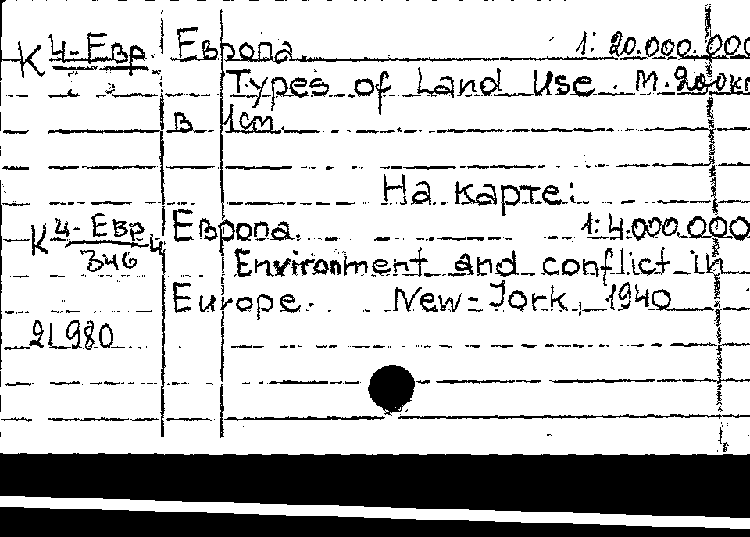 К 4-Евр Европа. 1:20.000.000
Types of Land Use. М.200км
в 1см.
На карте:
К 4-Евр/346 4 Европа. 1:4.000.000
Environment and conflict in
Europe. New-Jork, 1940
21980